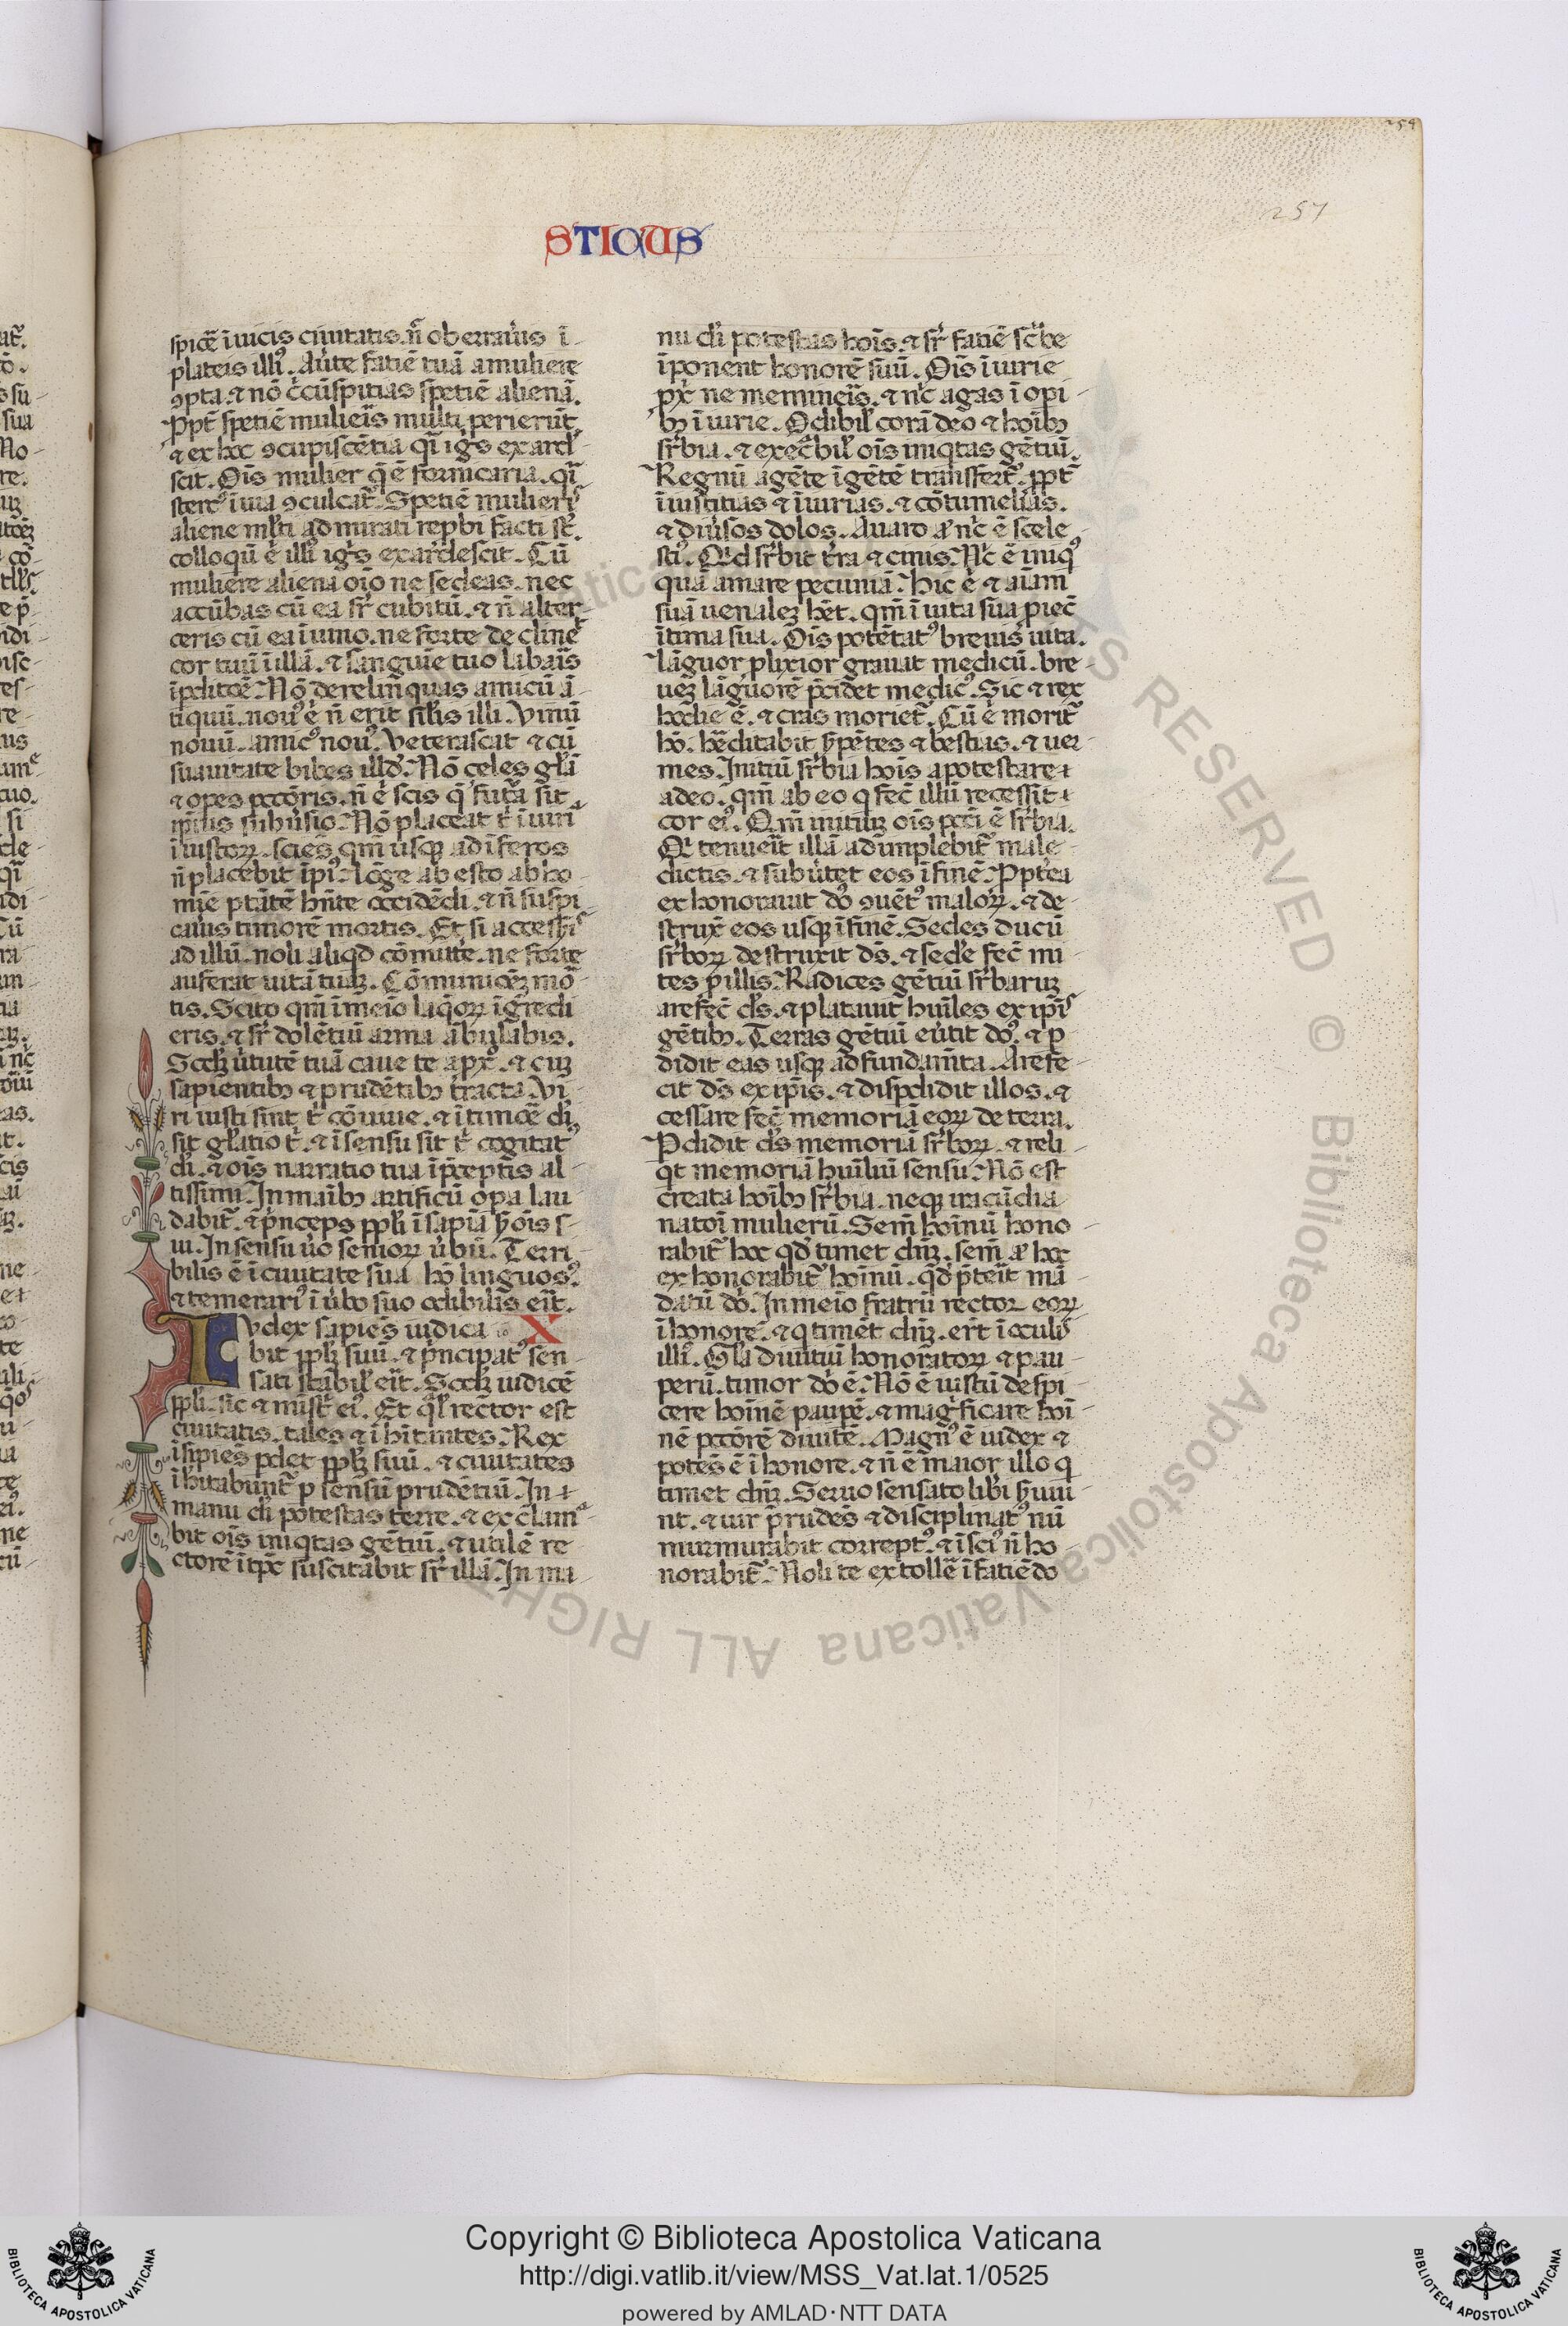 254
257
STICUS
spicē ī uicis ciuitatis. n̄ oberrau̓is ī
plateis illi⁹. Au̓te fatiē tuā a muliere
ꝯpta. ⁊ nō c̓cūspitias spetiē alienā.
Ppt̄ spetiē mulieris multi perierūt
⁊ ex hoc ꝯcupiscētia qͣi igͥs exard̓
scit. Oīs mulier q̄ ē fornicaria. qͣi
sterc⁹ ī uia ꝯculcat̄. Spetiē mulieris
aliene ml̓ti admirati rep̄bi facti st̄.
colloqͥū ē illi⁹ igͥs exardescit. Cū
muliere aliena oīo ne sedeas. nec
accūbas cū ea sr̄ cubitū. ⁊ n̄ alter
ceris cū ea ī uino. ne forte declinet
cor tuū ī illā. ⁊ sanguīe tuo labaris
ī pditōe. Nō derelīnquas amicū ā
tiquū. nou⁹ ē n̄ erit sil̓is illi. Vinū
nouū. amic⁹ nou⁹. veterascat ⁊ cū
suauitate bibes illd̓. Nō zeles gl̓ā
⁊ opes pctōris. n̄ ē scis q̄ futͣa sit
ipīus subu̓sio. Nō placeat t̓ ī iuri
ī iustoꝝ. scies qm̄ usqꝫ ad īferos
n̄ placebit ipī⁹. Lōge abesto ab ho
mīe ptāte hn̄te occidēdi. ⁊ n̄ suspi
caƀis timorē mortis. Et si accessis̓
ad illū. noli aliqͥd cōmitte̓. ne forte
auferat uitā tuaꝫ. Cōmunicōꝫ mō
tis. Scito qm̄ ī meīo laq̓oꝝ īgredi
eris. ⁊ sr̄ dolētiū arma ābulabis.
Scdꝫ u̓tutē tuā caue te a px̄. ⁊ cuꝫ
sapientibꝫ ⁊ prudētibꝫ tracta. Vi
ri iusti sint t̓ cōuiue. ⁊ ī timōe di̓.
sit gl̓atio t̓. ⁊ ī sensu sit t̓ cogitat⁹
di̓. ⁊ oīs narratio tua ī p̄ceptis al
tissimi. In maībꝫ artificū opa lau
dabit̄. ⁊ pͥnceps ppl̓i ī sapīa ẜmōis s
ui. In sensu u̓o senioꝝ u̓bū. Terri
bilis ē ī ciuitate sua hō linguos⁹.
⁊ temerari⁹ ī u̓bo suo odibilis erit.
Iudex sapiēs iudica X
bit pplꝫ suū. ⁊ pͥncipat⁹ sen
sati stabil̓ erit. Scdꝫ iudicē
ppl̓i. sic ⁊ mīst̓ ei⁹. Et qͣl̓ rector est
ciuitatis. tales ⁊ īhitantes. Rex
īsipiēs pdet pplꝫ suū. ⁊ ciuitates
īhitabunt̄ p sensū prudētiū. In
manu di̓ potestas terre. ⁊ exclam
bit oīs iniqͥtas gētiū. ⁊ utilē re
ctorē ī tpē suscitabit sr̄ illā. In ma
nu di̓ potestas hoīs. ⁊ sr̄ fatiē sc̓be
īponent honorē suū. Oīs ī iurie
px̄ ne memineris. ⁊ n̓c agas ī opi
bꝫ ī iurie. Odibil̓ corā deo ⁊ hoībꝫ
sr̄bia. ⁊ execͣbil̓ oīs iniqͥtas gētiū.
Regnū a gēte ī gētē transfert̄. ppt̄
ī iustitias ⁊ ī iurias. ⁊ cōtumelias.
⁊ diu̓sos dolos. Auaro aͧ n̓c ē scele
sti⁹. Qͥd sr̄bit t̓ra ⁊ cinis. N̓c ē iniqͥ⁹
quā amare pecuniā. Hic ē ⁊ aīam
suā uenaleꝫ hēt. qm̄ ī uita sua piec̄
ītima sua. Oīs potētat⁹ breuis uita.
Lāguor plixior grauat medicū. bre
ueꝫ lāguorē p̄cidet medic⁹. Sic ⁊ rex
hodie ē. ⁊ cras moriet̄. Cū ē morit̄
hō. hēditabit ẜpētes ⁊ bestias. ⁊ uer
mes. Initiū sr̄bia hoīs apostatare
a deo. qm̄ ab eo q fec̄ illū recessit
cor ei⁹. Qm̄ initiuꝫ oīs pcti ē sr̄bia.
Q tenuerit illā adimplebit̄ male
dictis. ⁊ subu̓tet eos ī finē. Ppt̓ea
exhonorauit dō ꝯuēt⁹ maloꝝ. ⁊ de
strux̄ eos usqꝫ ī finē. Sedes ducū
sr̄boꝝ destruxit ds̄. ⁊ sede̓ fec̄ mi
tes p̄ illis. Radices gētiū sr̄baruꝫ
arefec̄ ds̄. ⁊ plātauit huīles ex ipīs
gētibꝫ. Terras gētiū eu̓tit dō. ⁊ p
didit eas usqꝫ ad fundam̄ta. Arefe
cit ds̄ ex ipīs. ⁊ disp̄didit illos. ⁊
cessare fec̄ memoriā eoꝝ de terra.
Pdidit ds̄ memoriā sr̄boꝝ. ⁊ reli
qͥt memoriā huīliū sensu. Nō est
creata hoībꝫ sr̄bia. neqꝫ iracūdia
natoī mulierū. Sem̄ hoīnū hono
rabit̄ hoc qd̓ timet dm̄ꝫ. sem̄ aͧ hoc
exhonorabit̄ hoīnū. qd̓ p̄terit mā
datū dō. In meīo fratrū rector eoꝝ
ī honore. ⁊ q timēt dm̄ꝫ. ert̄ ī oculis
illi⁹. Gl̓a diuitū honoratoꝝ ⁊ pau
perū. timor dō ē. Nō ē iustū despi
cere hoīnē paupē. ⁊ magͥficare hoī
nē pctōrē diuitē. Magn⁹ ē iudex ⁊
potēs ē ī honore. ⁊ n̄ ē maior illo q
timet dm̄ꝫ. Seruo sensato libi̓ ẜuiū
nt. ⁊ uir prudēs ⁊ disciplinat⁹ nū
murmurabit corrept⁹. ⁊ īsci⁹ n̄ ho
norabit̄. Noli te extollē ī fatiēdo
Biblioteca Apostolica Vaticana ALL RIGHTS RESERVED ©
Copyright © Biblioteca Apostolica Vaticana
http://digi.vatlib.it/view/MSS_Vat.lat.1/0525
powered by AMLAD·NTT DATA
BIBLIOTECA APOSTOLICA VATICANA
BIBLIOTECA APOSTOLICA VATICANA